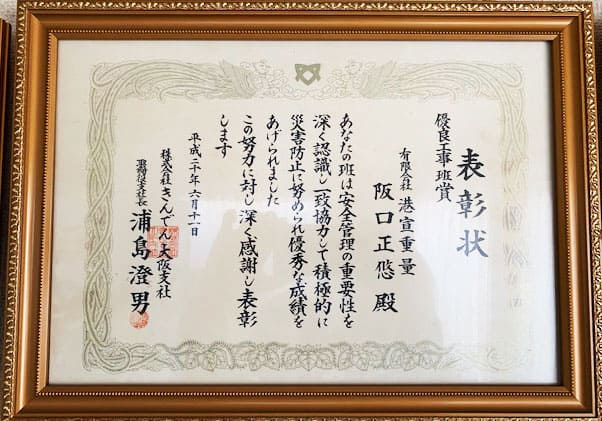 表彰状
優良工事班賞
有限会社 港宣重量
阪口正悠 殿
あなたの班は安全管理の重要性を
深く認識し一致協力して積極的に
災害防止に努められ優秀な成績を
あげられました
この努力に対し深く感謝し表彰
します
平成二十年六月十一日
株式会社きんでん大阪支社
支社長 浦島澄男